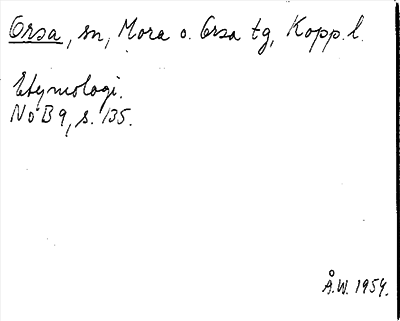 Orsa, sn, Mora o. Orsa tg, Kopp. l.
Etymologi.
NoB 9, s. 135.
Å.W. 1954.